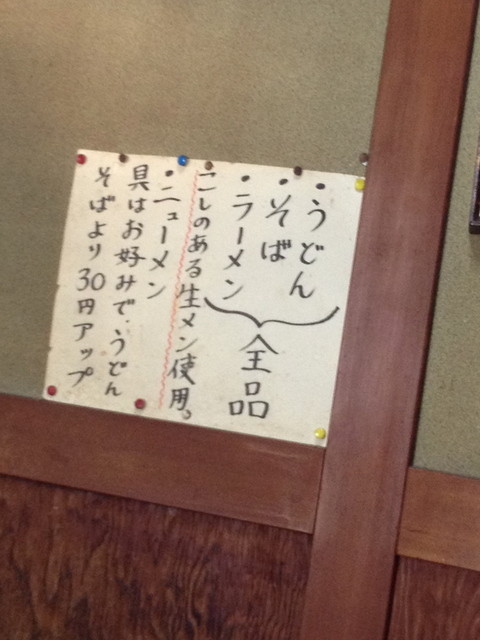 ・うどん
・そば
・ラーメン
全品
こしのある生メン使用。
・ニューメン
具はお好みで、うどん
そばより30円アップ